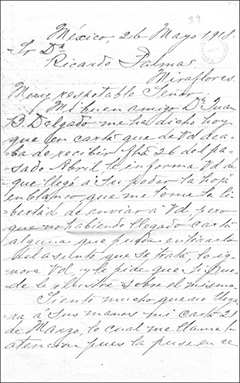 39
México, 26 Mayo 1911.
Sr Dn
Ricardo Palma
Miraflores.
Muy respetable Señor:
Mi buen amigo Dn Juan
B. Delgado me ha dicho hoy
que en carta que de Vd aca-
ba de recibir fha 26 del pa-
sado Abril, le informa Vd
que llegó a su poder la hoja
en blanco, que me tomé la li-
bertad de enviar a Vd, pero
que no habiendo llegado carta
alguna que
del asunto que se trata, lo ig-
nora Vd, y le pide que si pue-
de le ilustre sobre el mismo.
Siento mucho que no llega-
ra a sus manos mi carta 21
de Marzo, lo cual me llama la
atención pues la puse en ce